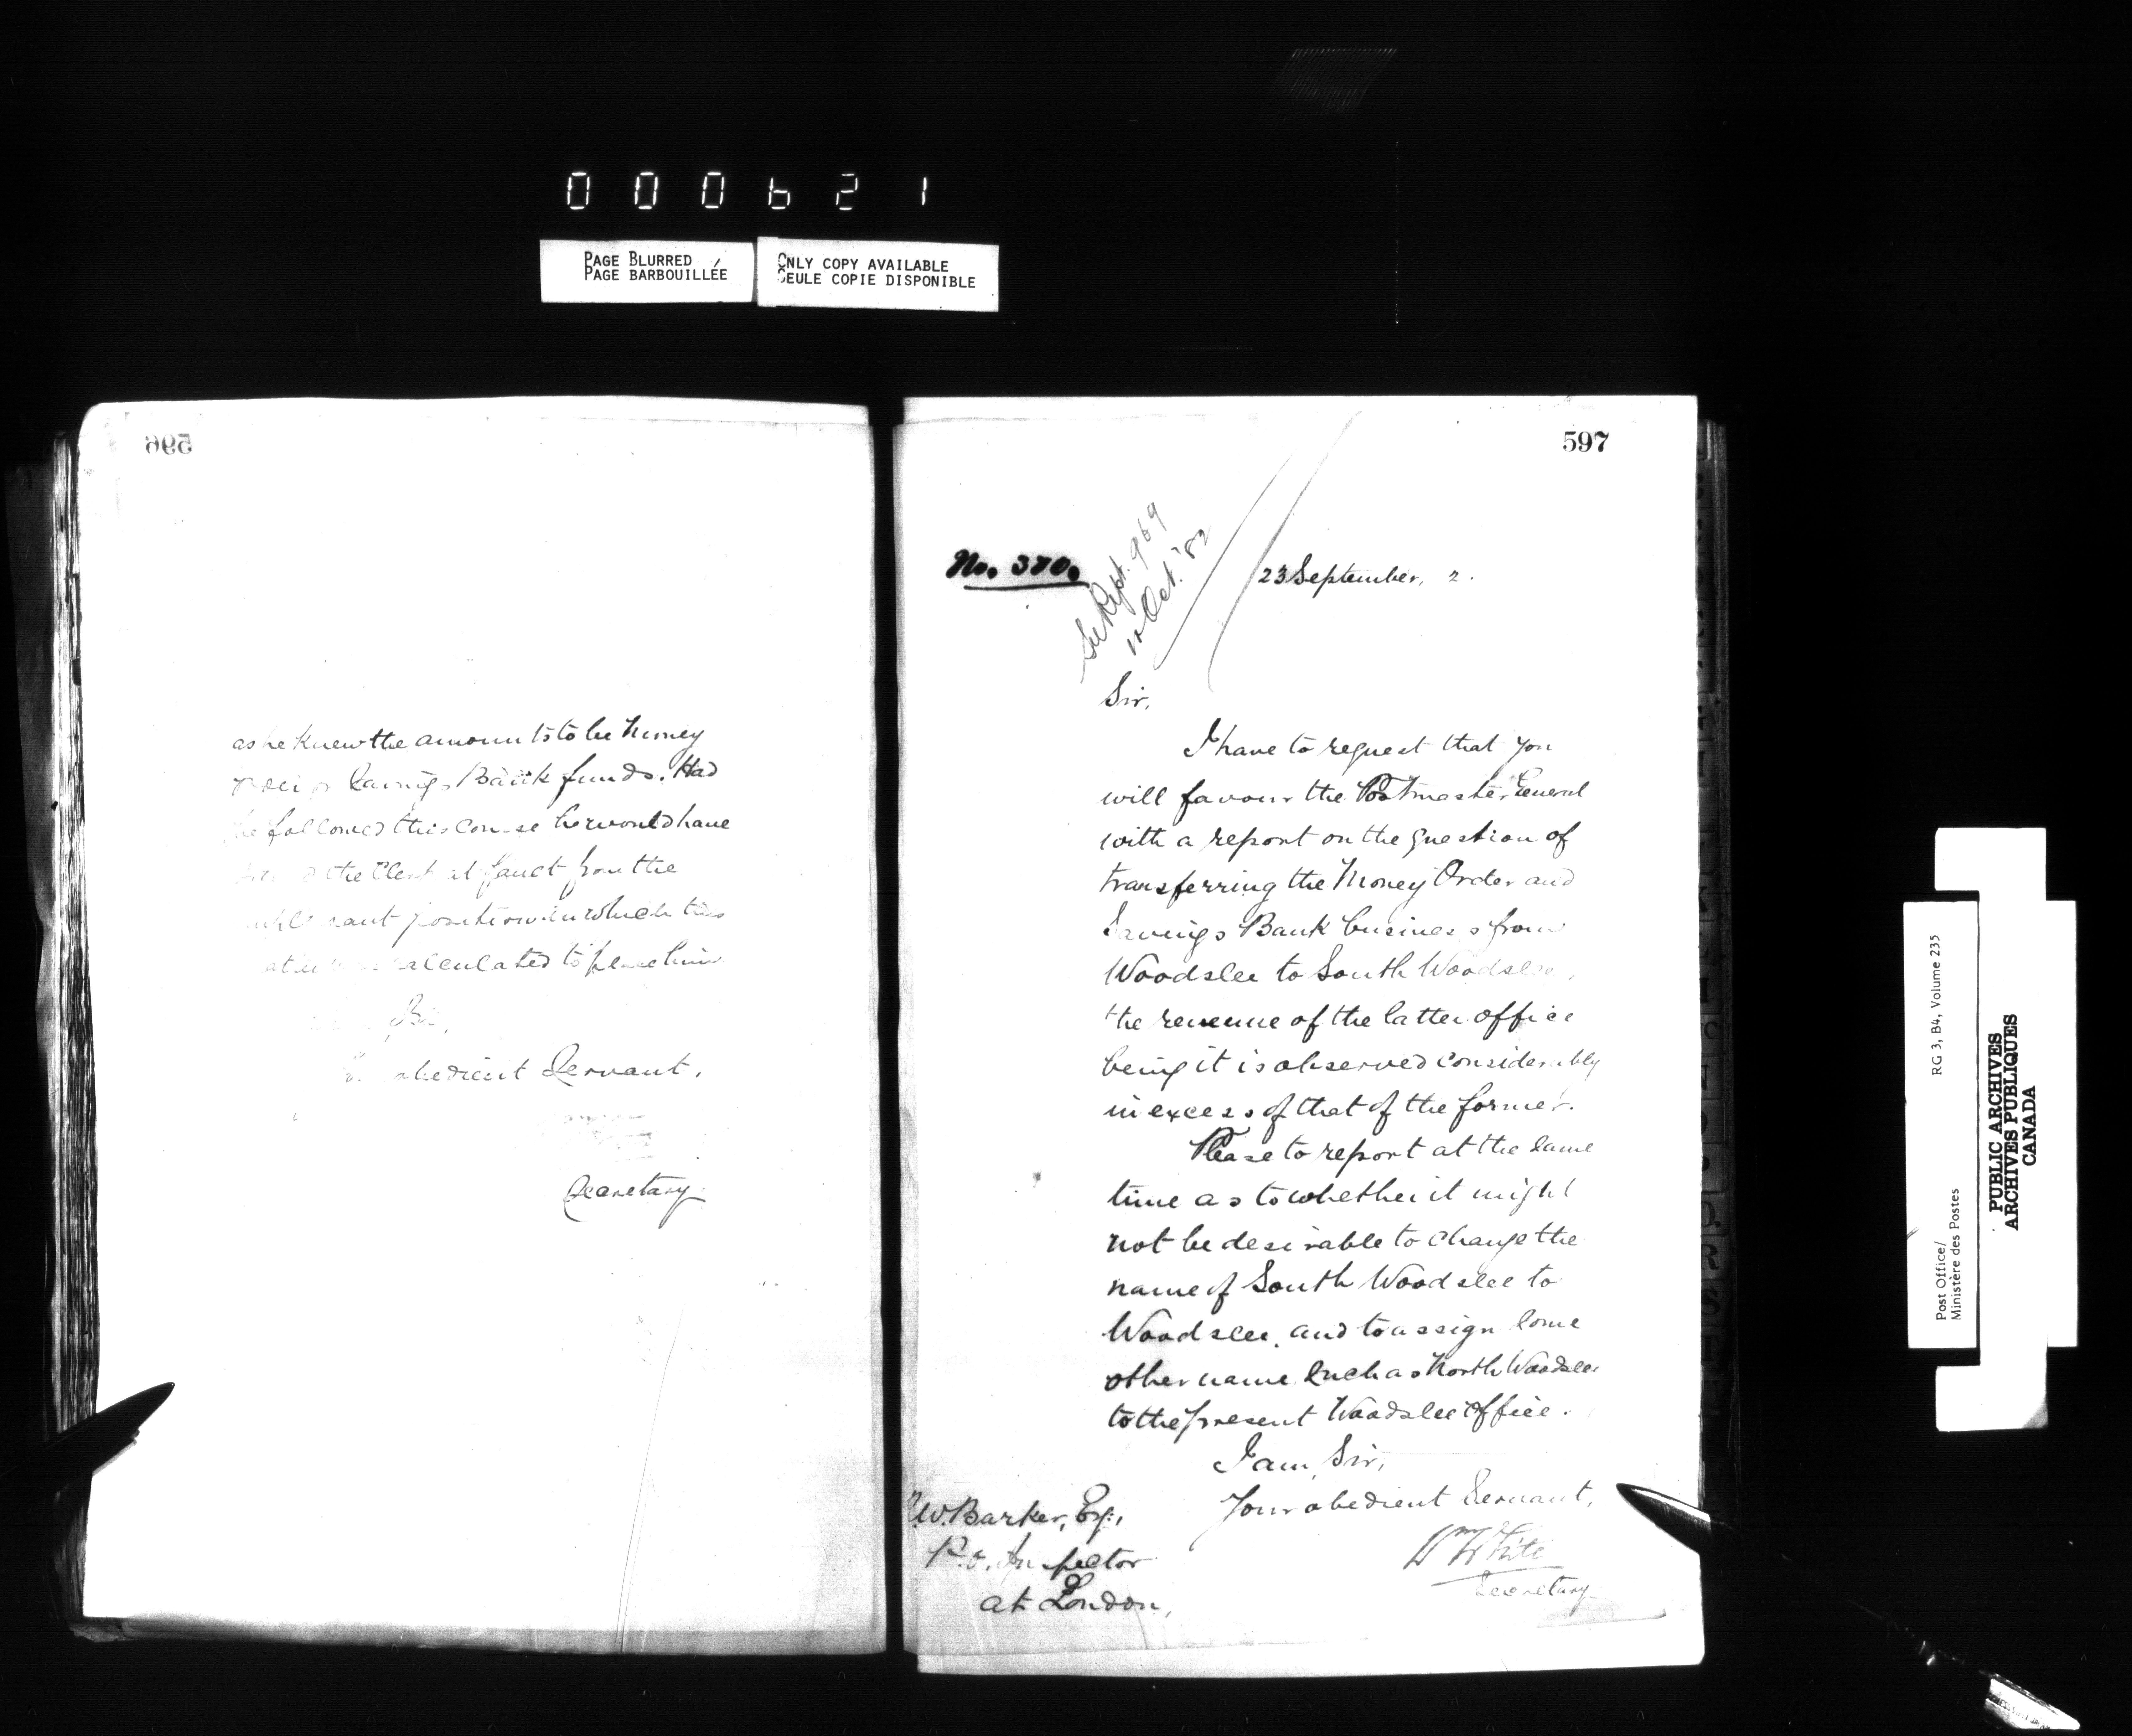 000621
PAGE BLURRED
PAGE BARBOUILLÉE
ONLY COPY AVAILABLE
SEULE COPIE DISPONIBLE
596
as he knew the amounts to be Money
Savings Bank funds. Had
he followed this course he would have
the Clerk at fault from the
position in which this
calculated to place him
Sir,
obedient Servant,
Secretary
597
No. 370.
See Rept. 969
11 Oct. '82
23 September, 2.
Sir,
I have to request that you
will favour the Postmaster General
with a report on the question of
transferring the Money Order and
Savings Bank business from
Woodslee to South Woodslee,
the revenue of the latter office
being it is observed considerably
in excess of that of the former.
Please to report at the same
time as to whether it might
not be desirable to change the
name of South Woodslee to
Woodslee, and to assign some
other name such as North Woodslee
to the present Woodslee Office.
I am, Sir,
Your obedient Servant,
Wm White
Secretary
R.W. Barker, Esq.,
P.O. Inspector
at London,
Post Office/
Ministère des Postes
RG 3, B4, Volume 235
PUBLIC ARCHIVES
ARCHIVES PUBLIQUES
CANADA